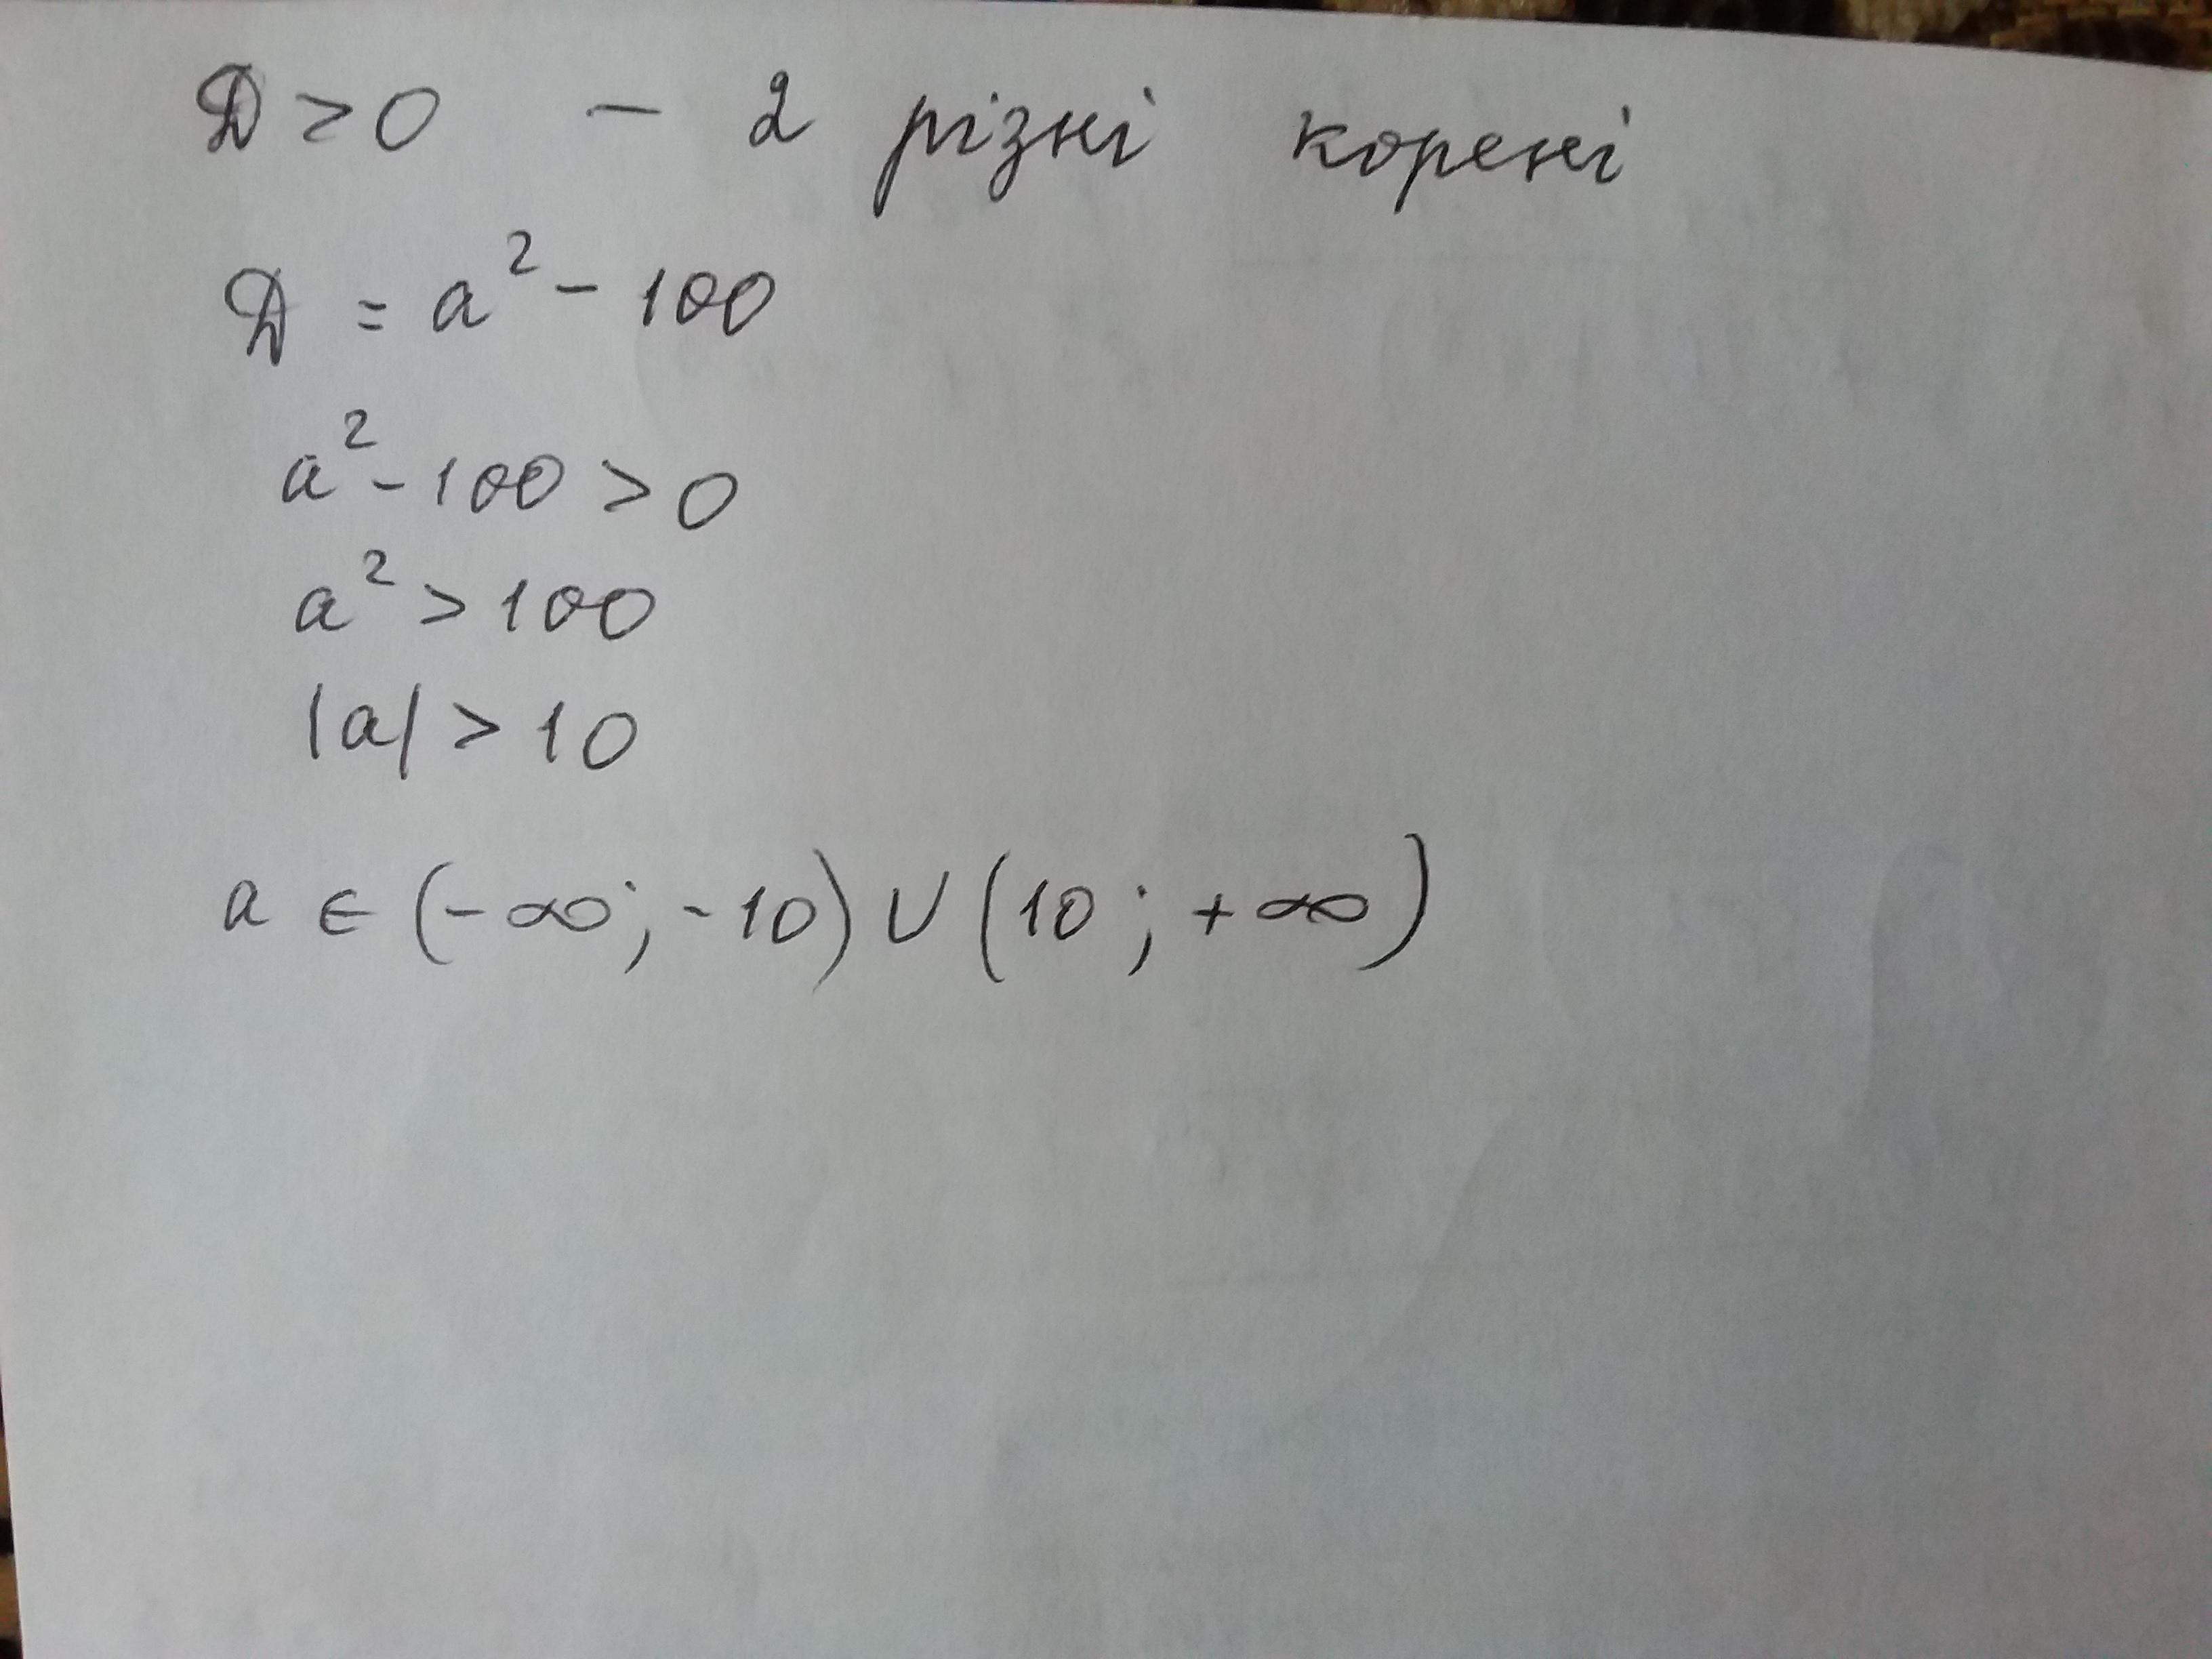 D > 0 - 2 різні корені
D = a² - 100
a² - 100 > 0
a² > 100
|a| > 10
a ∈ (-∞; -10) ∪ (10; +∞)